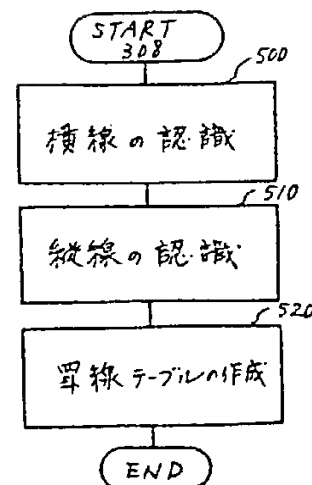 START
308
500
横線の認識
510
縦線の認識
520
罫線テーブルの作成
END